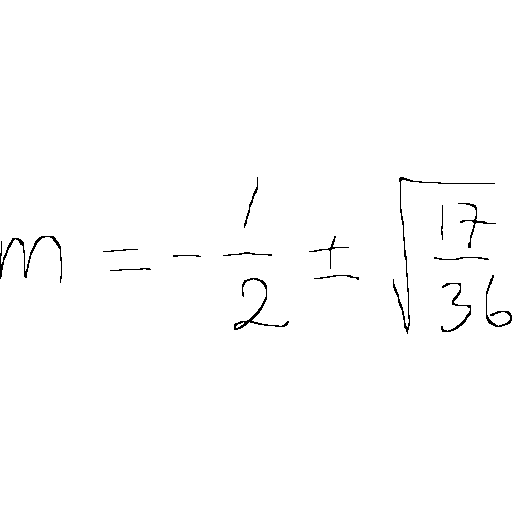 m = -\frac{1}{2} \pm \sqrt{\frac{17}{36}}